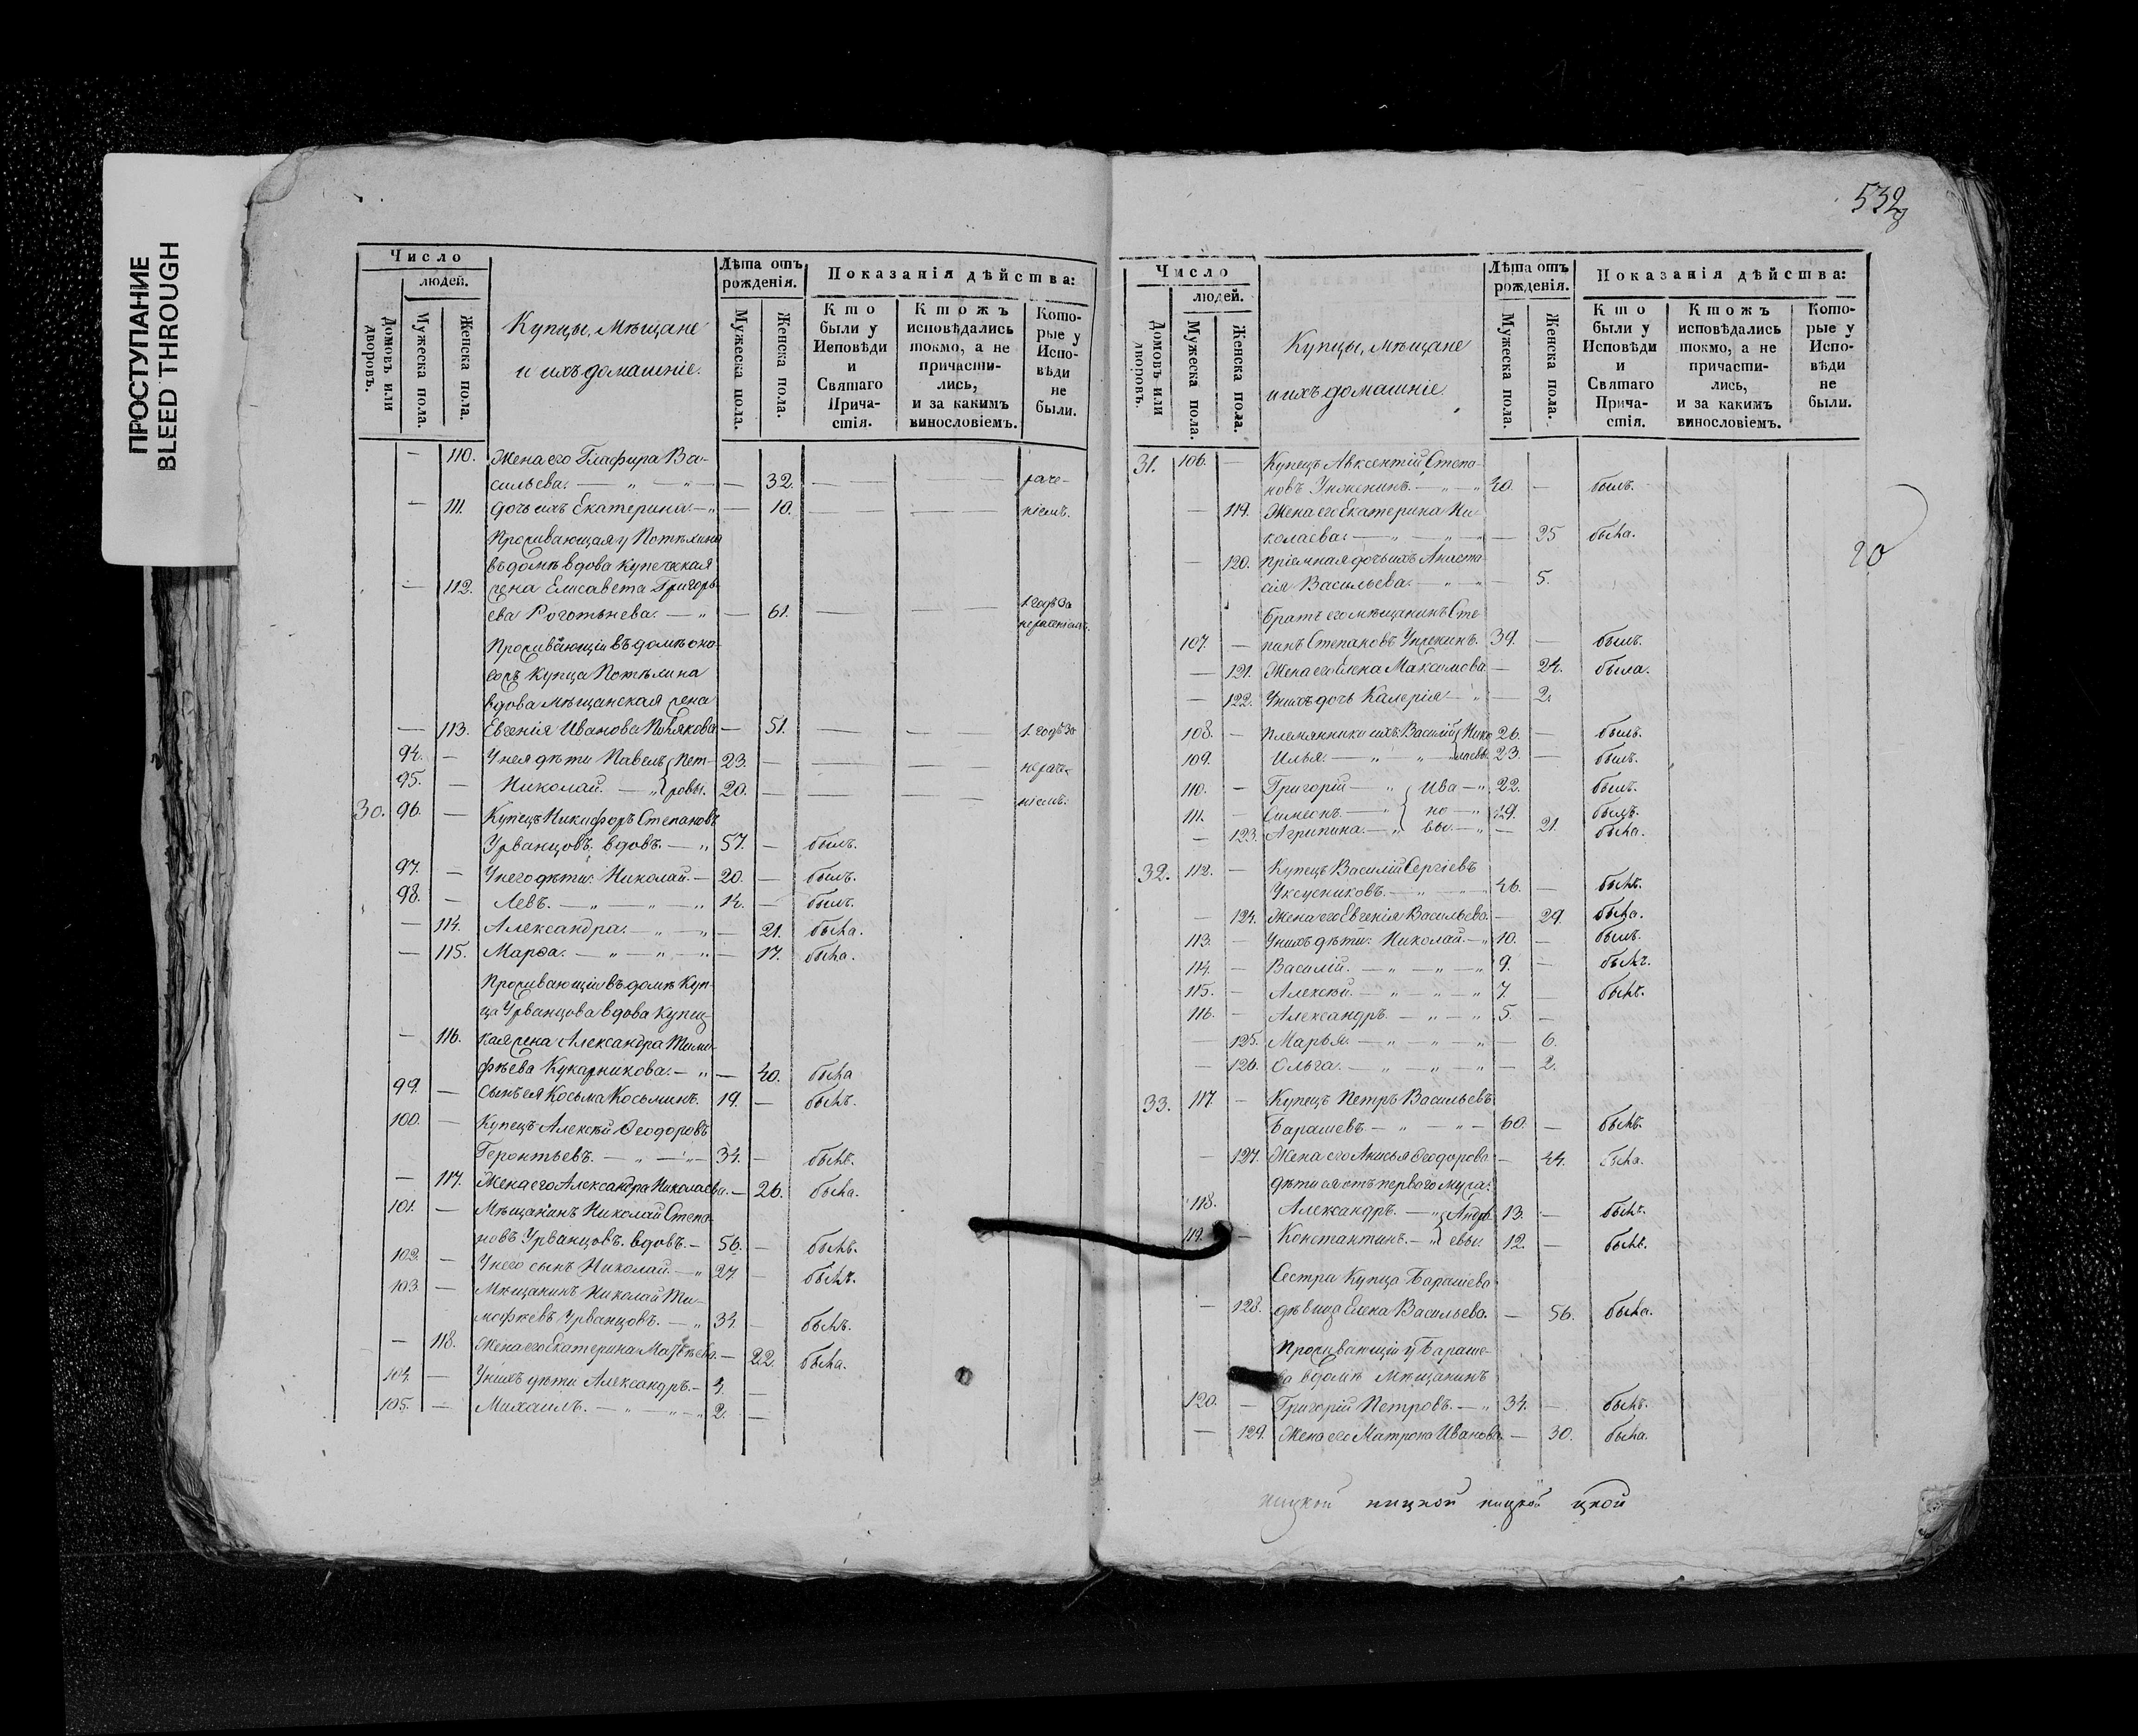 ПРОСТУПАНИЕ
BLEED THROUGH
Число
людей.
Домовъ или дворовъ.
Мужеска пола.
Женска пола.
Купцы, Мѣщане
и ихъ домашніе.
Лѣта отъ рожденія.
Мужеска пола.
Женска пола.
Показанія дѣйства:
Кто были у Исповѣди и Святаго Прича-стія.
Ктожъ исповѣдались токмо, а не причасти-лись, и за какимъ винословіемъ.
Кото-рые у Испо-вѣди не были.
— 110. Жена его Глафира Ва-
сильева. — „ — „ — — 32. — — — раче-
— 111. Дочь ихъ Екатерина. — „ — 10. — — — ніемъ.
Проживающая у Потѣхина
въ домѣ вдова купеческая
— 112. жена Елисавета Григорь-
ева Роготьнева. — „ — 61. — — — 1. годъ за нераченіемъ.
Проживающіи въ домѣ она-
гожъ Купца Потѣхина
вдова Мѣщанская жена
— 113. Евгенія Иванова Полякова — 51. — — — 1. годъ за
94. — У нея дѣти Павелъ } Пет- 23. — — — — нераче-
95. — Николай. — „ } ровы. 20. — — — — ніемъ.
30. 96. — Купецъ Никифоръ Степановъ
Урванцовъ. вдовъ. — „ 57. — былъ.
97. — У него дѣти: Николай. — 20. — былъ.
98. — Левъ. — „ — „ 14. — былъ.
— 114. Александра. — „ — „ — 21. была.
— 115. Марѳа. — „ — „ — „ — 17. была.
Проживающіи въ домѣ Куп-
ца Урванцова вдова купец-
— 116. кая жена Александра Тимо-
фѣева Кукарникова. — „ — 40. была
99. — Сынъ ея Косьма Косьминъ. 19. — былъ.
100. — Купецъ Алексѣй Ѳеодоровъ
Геронтьевъ. — „ — „ — 34. — былъ.
— 117. Жена его Александра Николаева. — 26. была.
101. — Мѣщанинъ Николай Степа-
новъ Урванцовъ. вдовъ. — 56. — былъ.
102. — У него сынъ Николай. — „ 27 — былъ.
103. — Мѣщанинъ Николай Ти-
мофѣевъ Урванцовъ. — „ 34. — былъ.
— 118. Жена его Екатерина Матвѣева. — 22. была.
104. — У нихъ дѣти Александръ. — 4. —
105. — Михаилъ. — „ — „ — „ 2. —
532
Число
людей.
Домовъ или дворовъ.
Мужеска пола.
Женска пола.
Купцы, Мѣщане
и ихъ домашніе.
Лѣта отъ рожденія.
Мужеска пола.
Женска пола.
Показанія дѣйства:
Кто были у Исповѣди и Святаго Прича-стія.
Ктожъ исповѣдались токмо, а не причасти-лись, и за какимъ винословіемъ.
Кото-рые у Испо-вѣди не были.
31. 106. — Купецъ Авксентій Степа-
новъ Унженинъ. — „ — „ 40. — былъ.
— 119. Жена его Екатерина Ни-
колаева: — „ — „ — — 25 была.
— 120. Пріемная дочь ихъ Анаста-
сія Васильева. — „ — „ — 5.
Братъ его мѣщанинъ Сте-
107. — панъ Степановъ Унженинъ. 39. — былъ.
— 121. Жена его Елена Максимова — 24. была.
— 122. У нихъ дочь Калерія — „ — 2.
108. — Племянники ихъ: Василій } Нико 26. — былъ.
109. Илья. — „ — „ } лаевы. 23. — былъ.
110. — Григорій — „ } Ива — „ 22. былъ.
111. — Симеонъ. — „ } но — „ 19. былъ.
— 123. Агрипина. — „ } вы. — „ — 21. была.
32. 112. — Купецъ Василій Сергіевъ
Уксусниковъ. — „ — „ 46. — былъ.
— 124. Жена его Евгенія Васильева. — 29. была.
113. — У нихъ дѣти: Николай. — „ 10. — былъ.
114. — Василій. — „ — „ — „ 9. — былъ.
115. — Алексѣй. — „ — „ — „ 7. — былъ.
116. — Александръ. — „ — „ 5. —
— 125. Марья. — „ — „ — „ — 6.
— 126. Ольга. — „ — „ — „ — 2.
33. 117. — Купецъ Петръ Васильевъ
Барашевъ — „ — „ — 60. — былъ.
— 127. Жена его Анисья Ѳеодорова — 44. была.
дѣти ея отъ перваго мужа:
118. Александръ. — „ } Андр 13. — былъ.
119. — Константинъ. — „ } еевы. 12. — былъ.
Сестра Купца Барашева
— 128. дѣвица Елена Васильева. — 56. была.
Проживающіи у Бараше-
ва въ домѣ Мѣщанинъ
120. — Григорій Петровъ. — „ 34. — былъ.
— 129. Жена его Матрона Иванова — 30. была.
20
ницкой ницкой ницкой цкой